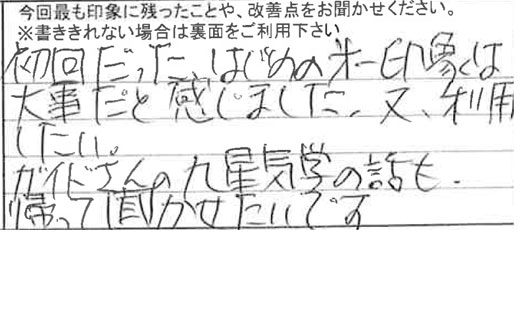 今回最も印象に残ったことや、改善点をお聞かせください。
※書ききれない場合は裏面をご利用下さい
初回だった、はじめの才一印象は
大事だと感じました、又、利用
したい。
ガイドさんの九星気学の話も、
帰って聞かせたいです